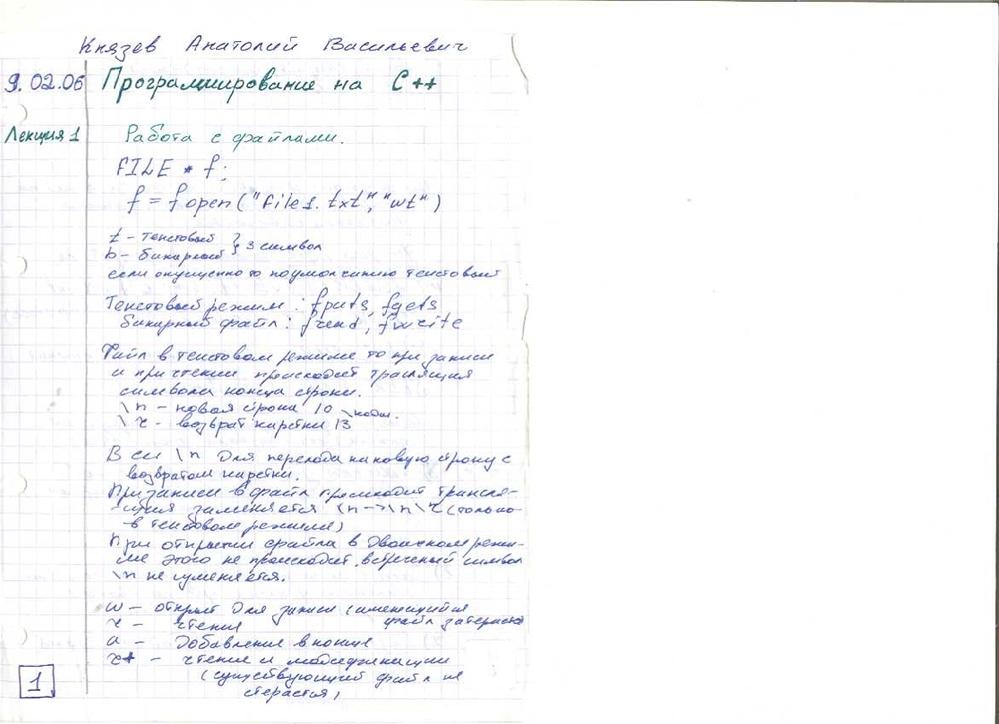 Князев Анатолий Васильевич
9.02.06 Программирование на С++
Лекция 1 Работа с файлами.
FILE * f;
f = fopen("file1.txt", "wt")
t – текстовый } 3 символ
b – бинарный
если опущенно то поумолчанию текстовый
Текстовый режим: fputs, fgets
бинарный файл: fread, fwrite
Файл в текстовом режиме то при записи
и при чтении происходит трасляция
символа конца строки.
\n – новая строка 10
\r – возврат каретки 13
В си \n для перехода на новую строку с
возвратом каретки.
При записи в файл происходит трансля-
-ция заменяется \n->\n\r (только
в текстовом режиме)
При открытии файла в двоичном режи-
ме этого не происходит, встреченый символ
\n не изменяется.
w – открыт для записи (имеющийся
файл затерается
r – чтения
a – добавление в конце
r+ – чтение и модификации
(существующий файл не
стерается)
1